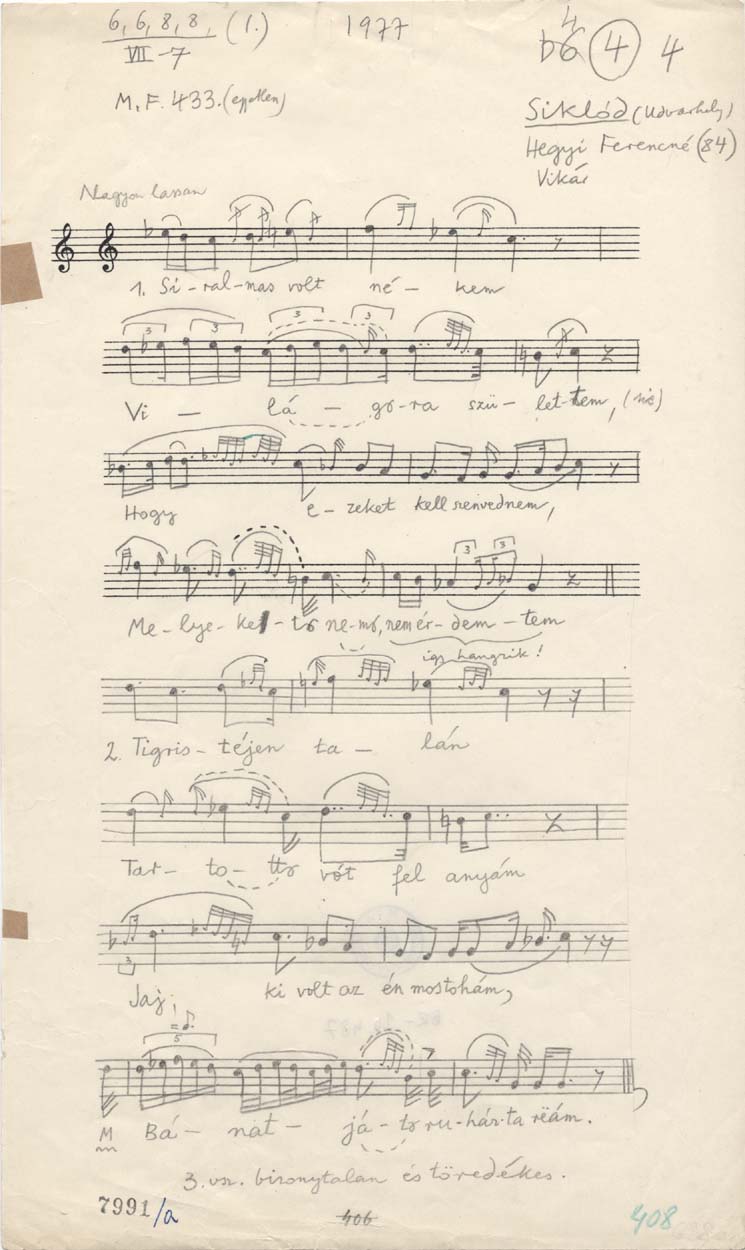 6, 6, 8, 8, (1.)
VII-7
1977
4
b6 4 4
M.F. 433. (egyetlen)
Siklód (Udvarhely)
Hegyi Ferencné (84)
Vikár
Nagyon lassan
1. Si-ral-mas volt né-kem
3 3 3 3
Vi-lá-go-ra szü-let-tem, (sic)
Hogy e-zeket kell szenvednem,
3 3
Me-lye-ke-tő ne-mő, nem ér-dem-tem
így hangzik!
2. Tigris-téjen ta-lán
Tar-to-ttő vót fel anyám
3
Jaj, ki volt az én mostohám,
5
M Bá-nat-já-tő ru-hár-ta rëám.
3. vsz. bizonytalan és töredékes.
7991/a
406
408